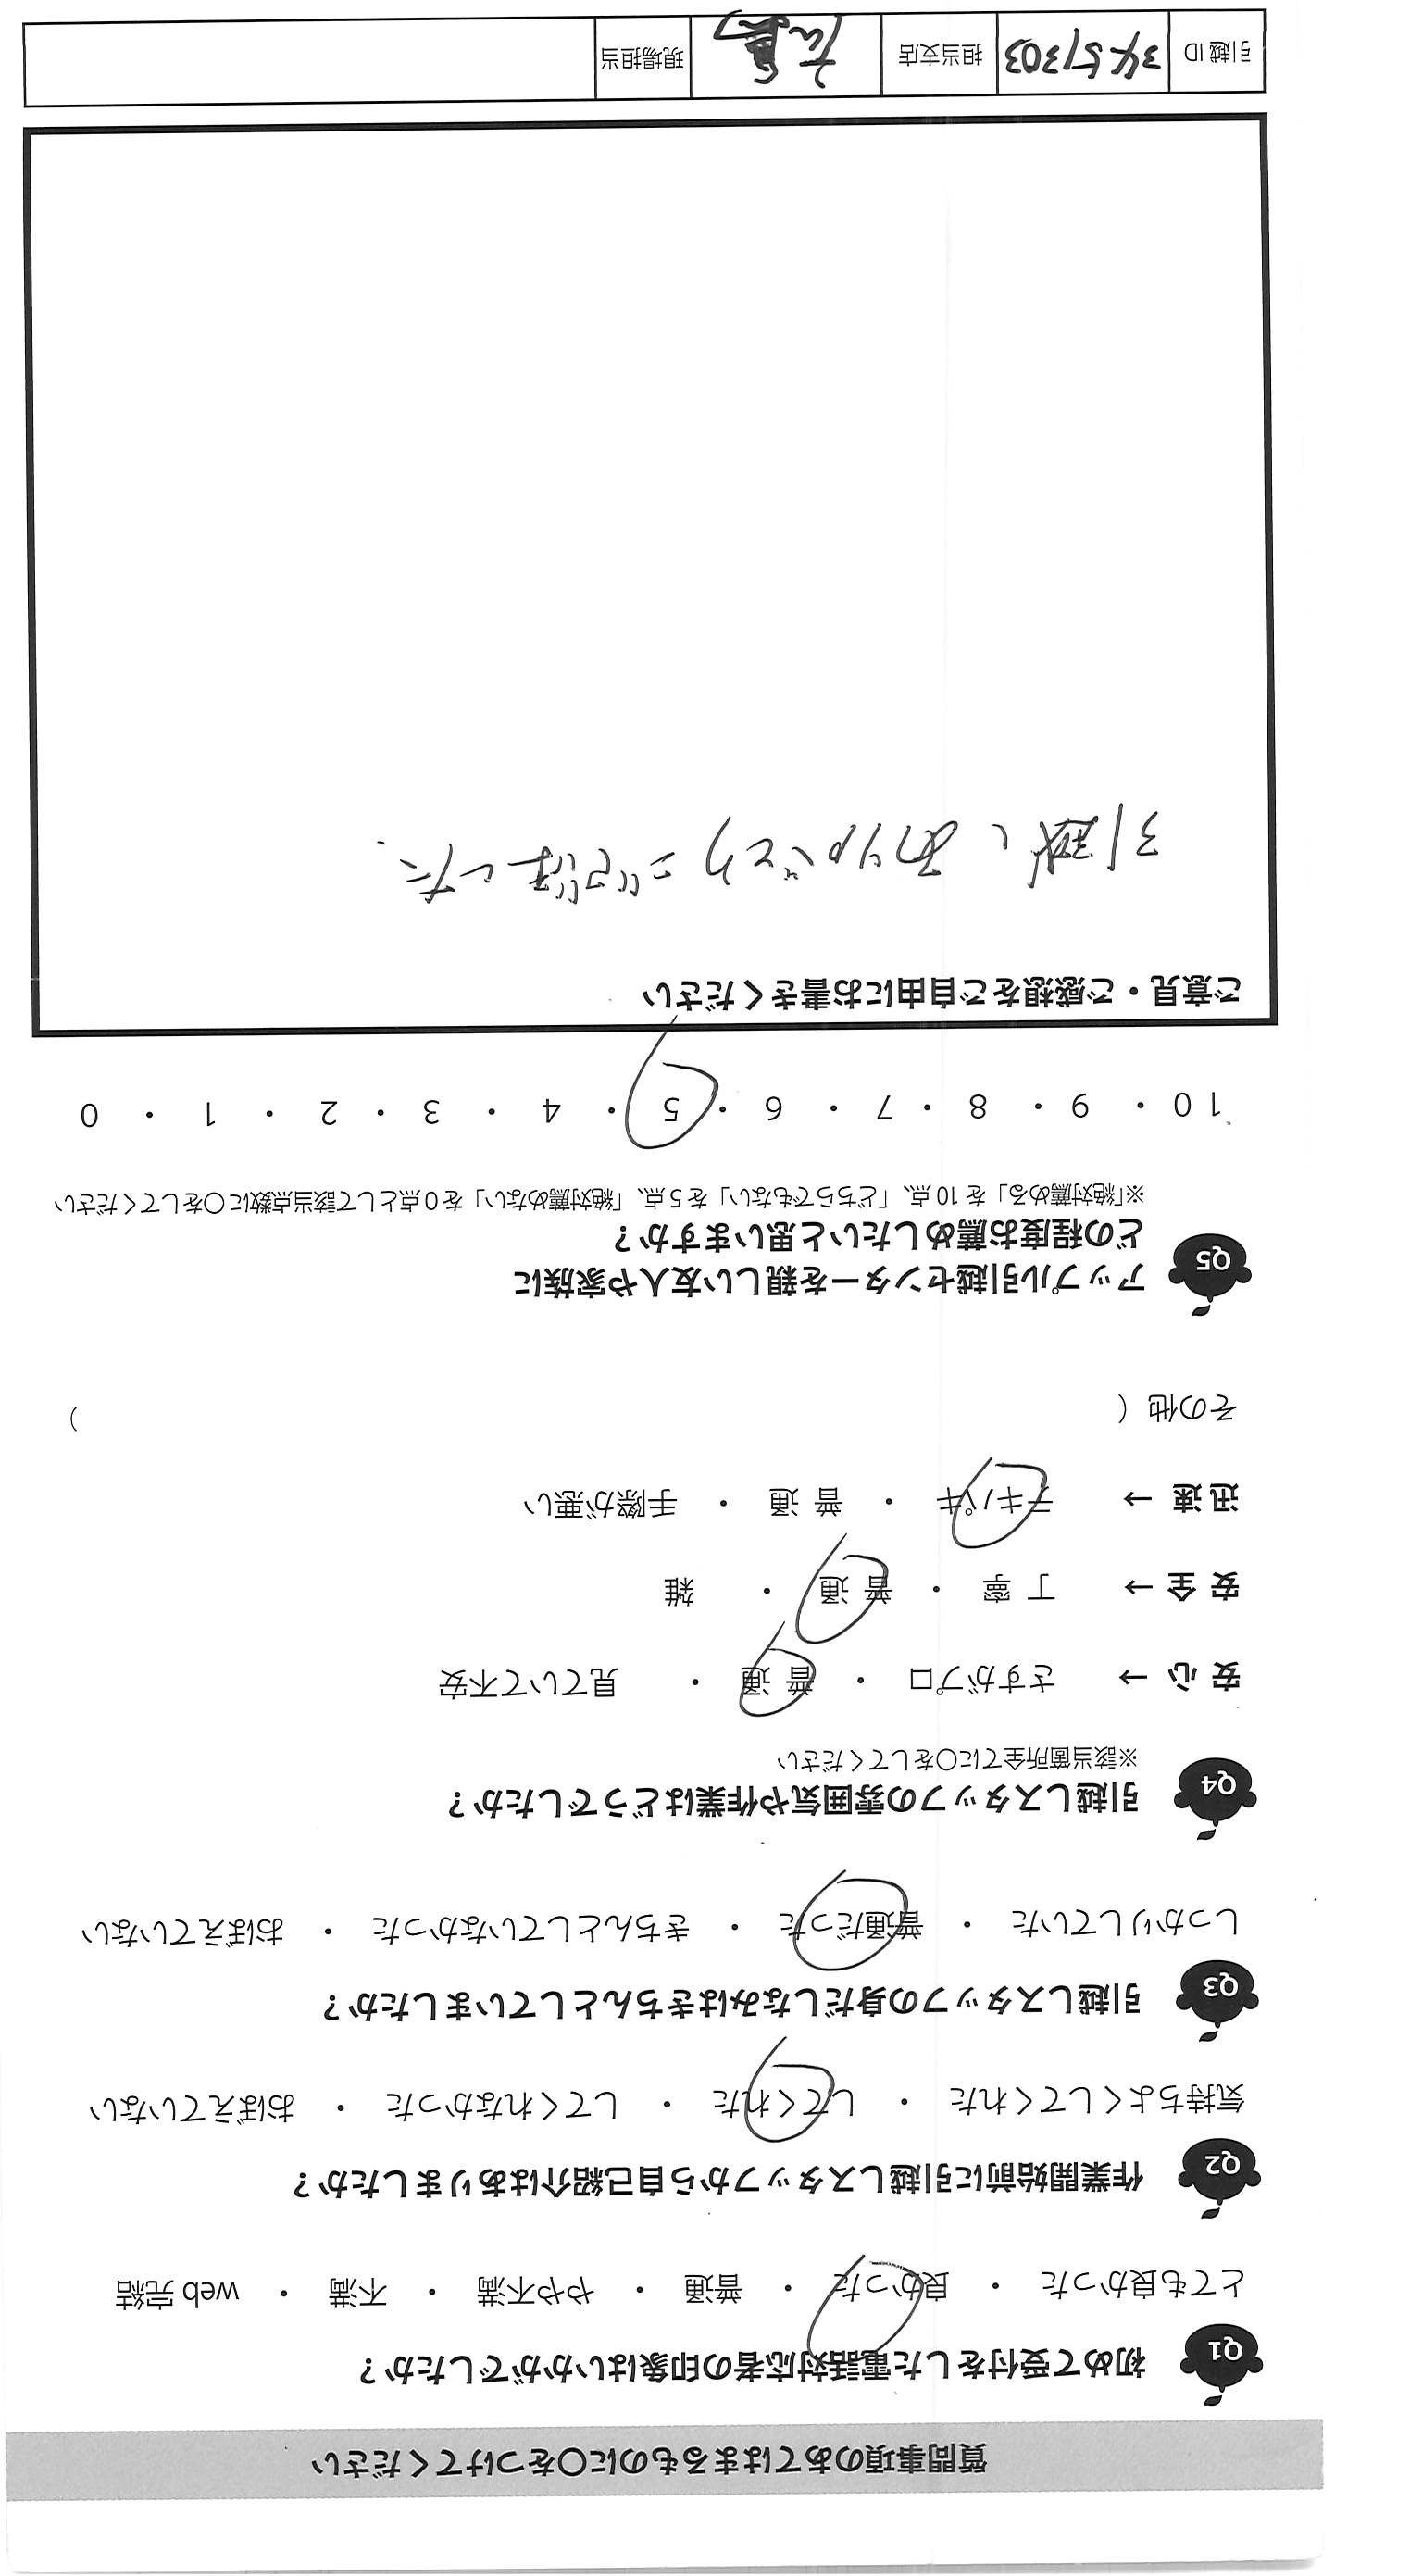 質問事項のあてはまるものに○をつけてください
Q1 初めて受付をした電話対応者の印象はいかがでしたか？
とても良かった ・ 良かった ・ 普通 ・ やや不満 ・ 不満 ・ web 完結
Q2 作業開始前に引越しスタッフから自己紹介はありましたか？
気持ちよくしてくれた ・ してくれた ・ してくれなかった ・ おぼえていない
Q3 引越しスタッフの身だしなみはきちんとしていましたか？
しっかりしていた ・ 普通だった ・ きちんとしていなかった ・ おぼえていない
Q4 引越しスタッフの雰囲気や作業はどうでしたか？
※該当箇所全てに○をしてください
安 心 → さすがプロ ・ 普 通 ・ 見ていて不安
安 全 → 丁 寧 ・ 普 通 ・ 雑
迅 速 → テキパキ ・ 普 通 ・ 手際が悪い
その他（ ）
Q5 アップル引越センターを親しい友人や家族に
どの程度お薦めしたいと思いますか？
※「絶対薦める」を 10 点、「どちらでもない」を 5 点、「絶対薦めない」を 0 点として該当点数に○をしてください
10 ・ 9 ・ 8 ・ 7 ・ 6 ・ 5 ・ 4 ・ 3 ・ 2 ・ 1 ・ 0
ご意見・ご感想をご自由にお書きください
引越し ありがとうございました.
引越 ID 3451303 担当支店 現場担当